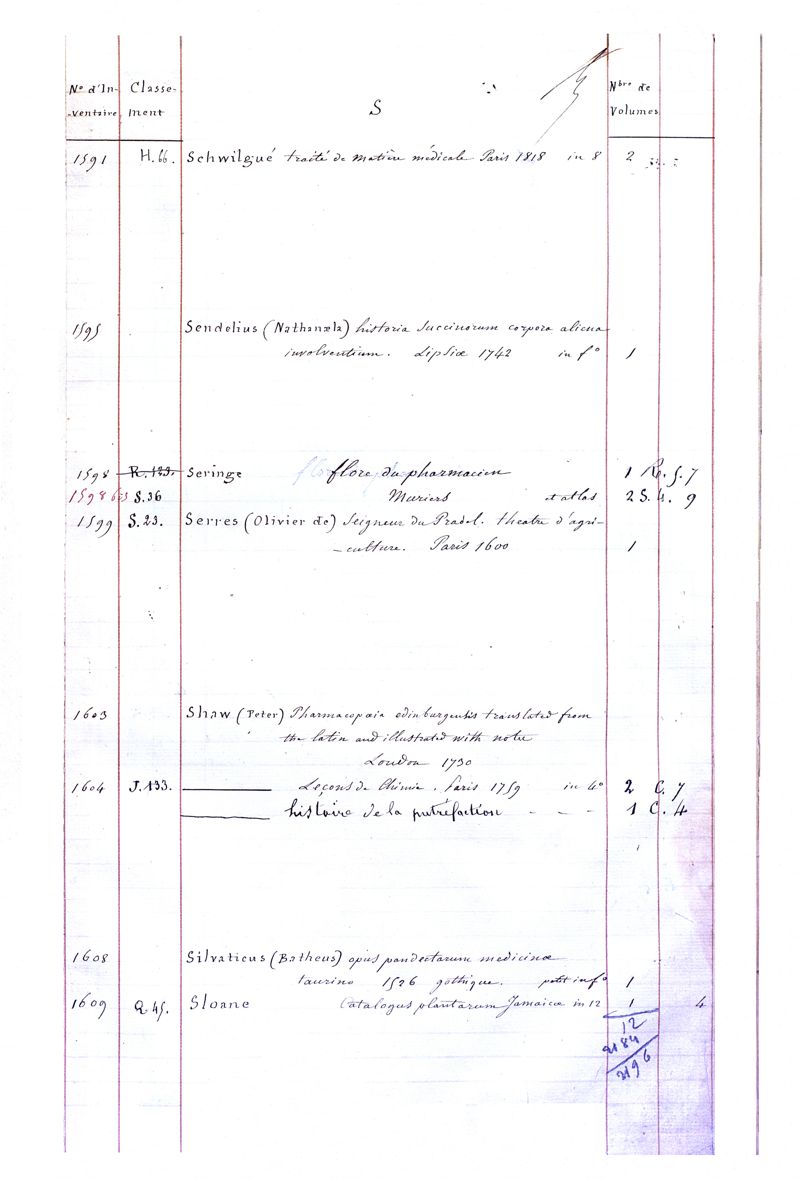 N° d'In- Classe- Nbre de
-ventaire ment S Volumes
1591 H.66. Schwilgué traité de matière médicale Paris 1818 in 8 2
1595 Sendelius (Nathanæla) historia succinorum corpora aliena
involventium. Lipsiæ 1742 in f° 1
1598 R.123. Seringe flore du pharmacien 1 R. 5. 7
1598 bis S.36 Muriers et atlas 2 S. 4. 9
1599 S.23. Serres (Olivier de) Seigneur du Pradel. theatre d'agri-
-culture. Paris 1600 1
1603 Shaw (Peter) Pharmacopœia edinburgensis translated from
the latin and illustrated with notes
London 1730
1604 J.133. ——— Leçons de Chimie. Paris 1759 in 4° 2 C. 7
——— histoire de la putréfaction - - - 1 C. 4
1608 Silvaticus (Batheus) opus pandectarum medicinæ
taurino 1526 gothique. petit in f° 1
1609 Q.45. Sloane Catalogus plantarum Jamaicæ in 12 1 4
12
2184
2196